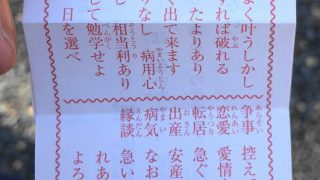 よく叶うしかし
すれば破れる
たよりあり
く出て来ます
りなし 病用心
し 相当利あり
して勉学せよ
日を選べ
争事 控え
恋愛 愛情
転居 急ぐ
出産 安産
病気 なお
縁談 急い
れあ
よろ